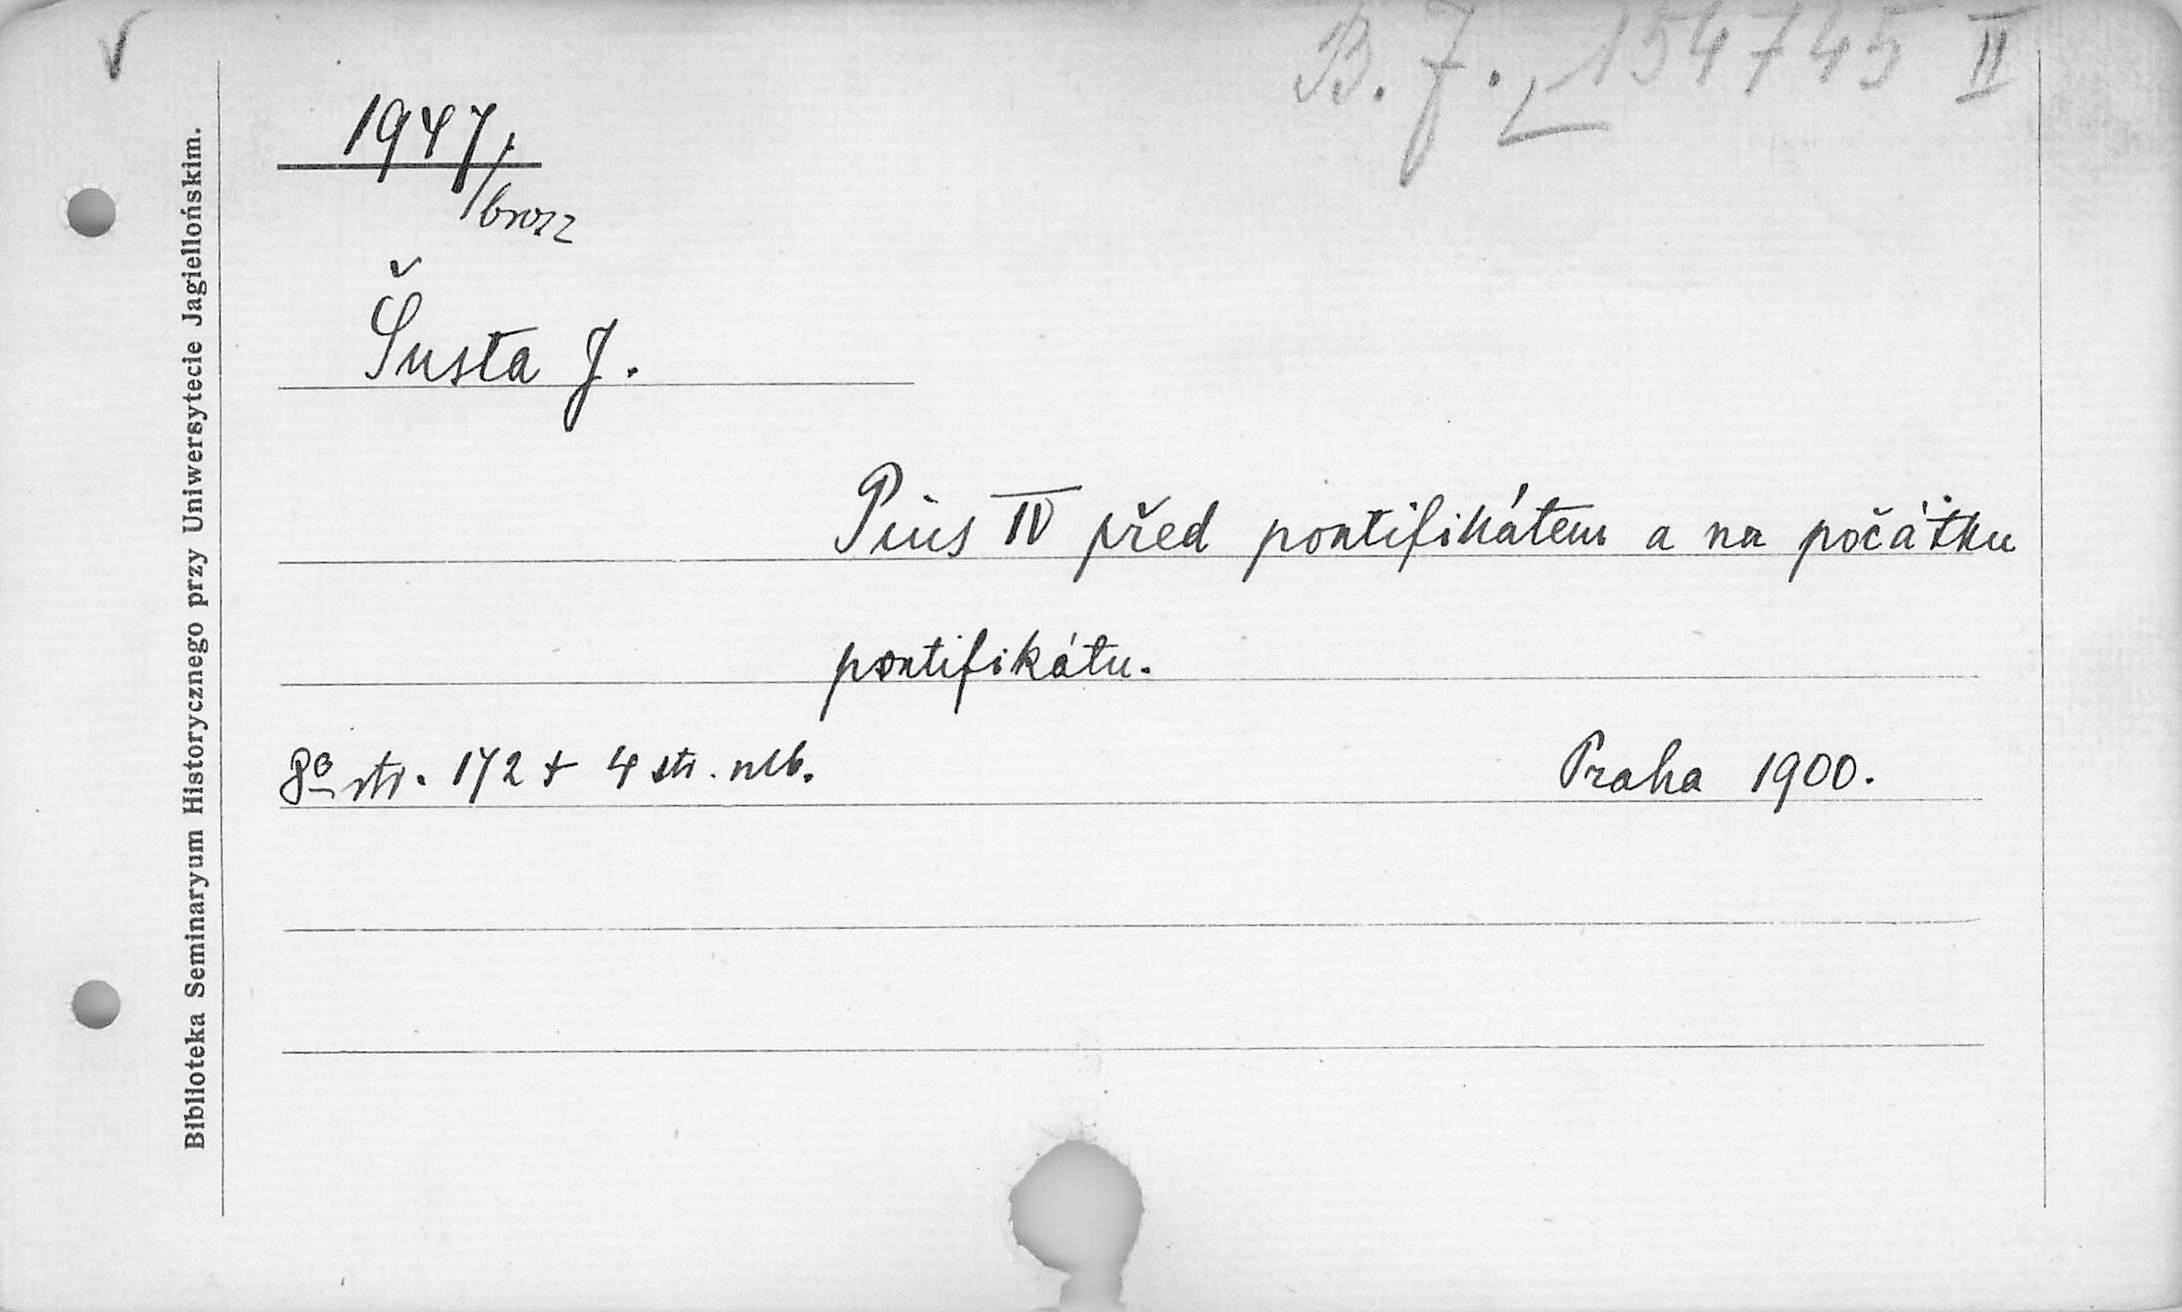 B. J. 154745 II
1947/
brosz
Šusta J.
Pius IV před pontifikátem a na počátku
pontifikátu.
8º str. 172 + 4 str. nlb.
Praha 1900.
Biblioteka Seminaryum Historycznego przy Uniwersytecie Jagiellońskim.